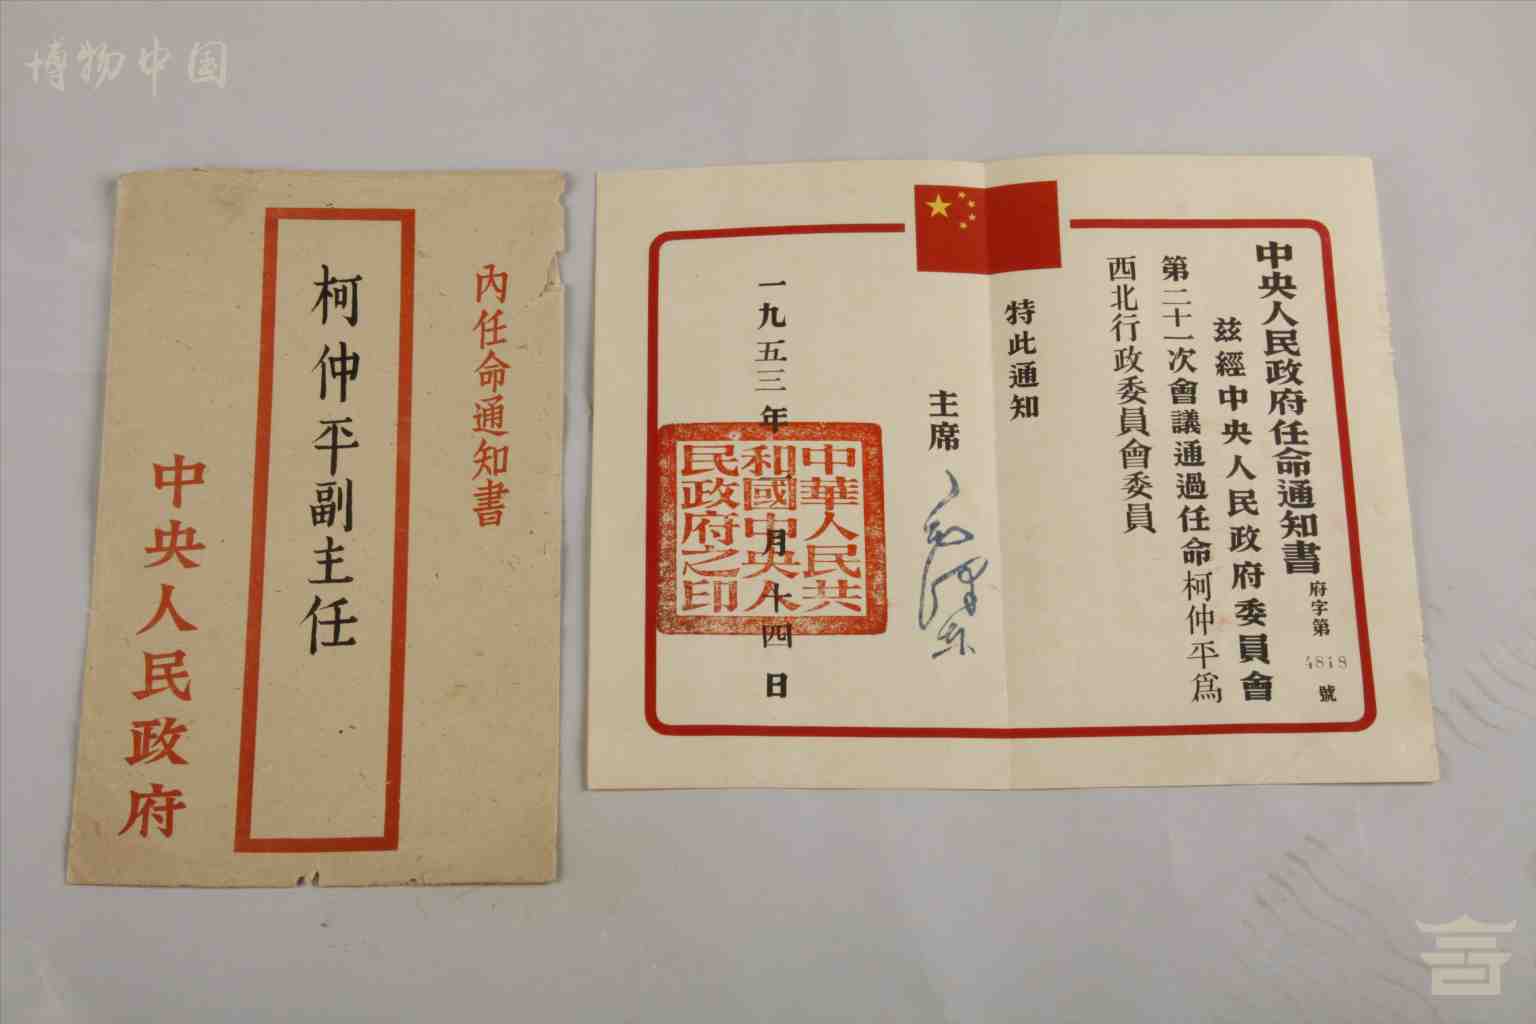 博物中国
內任命通知書
柯仲平副主任
中央人民政府
中央人民政府任命通知書
府字第4818號
茲經中央人民政府委員會
第二十一次會議通過任命柯仲平爲
西北行政委員會委員
特此通知
主席 毛澤東
一九五三年一月十四日
中華人民共
和國中央人
民政府之印